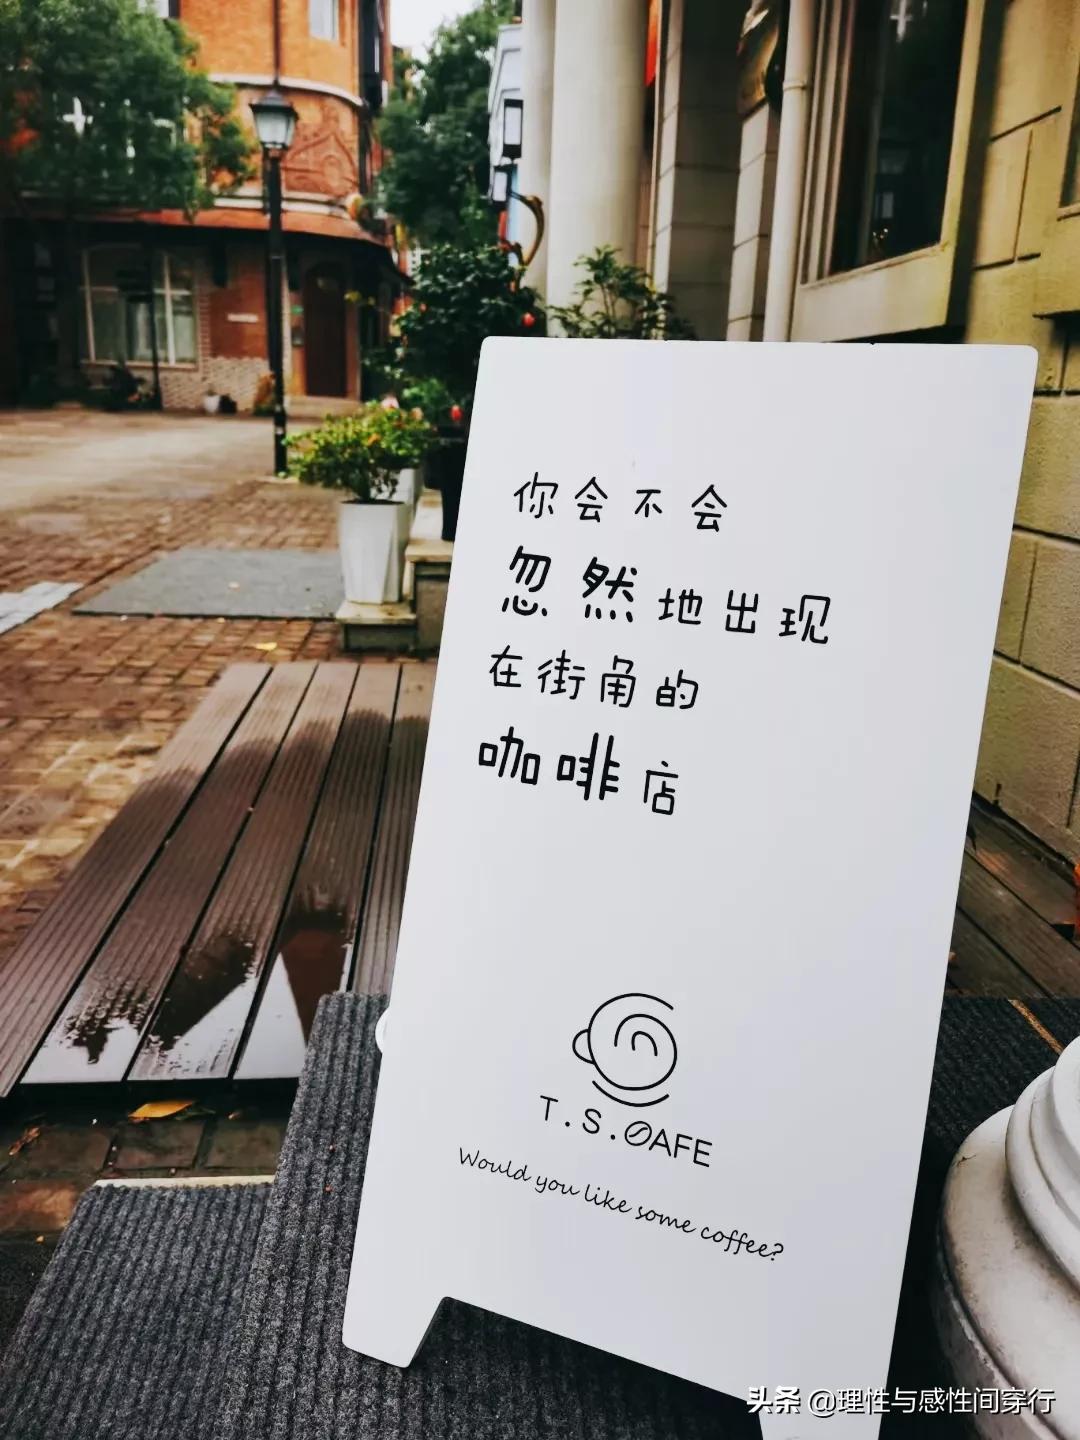 你会不会
忽然地出现
在街角的
咖啡店
T.S.CAFE
Would you like some coffee?
头条 @理性与感性间穿行